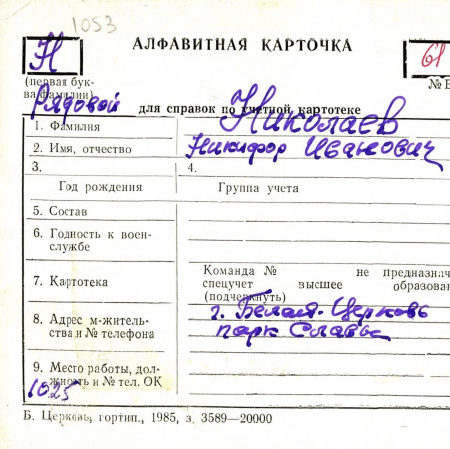 1053
Н
АЛФАВИТНАЯ КАРТОЧКА
61
(первая бук-
ва фамилии)
№ В
Рядовой
для справок по учетной картотеке
1. Фамилия Николаев
2. Имя, отчество Никифор Иванович
3. 4.
Год рождения Группа учета
5. Состав
6. Годность к воен-
службе
7. Картотека
Команда № не предназнач
спецучет высшее образова
(подчеркнуть)
8. Адрес м-житель-
ства и № телефона
г. Белая-Церковь
парк Славы
9. Место работы, дол-
жность и № тел. ОК
1025
Б. Церковь, гортип., 1985, з. 3589—20000